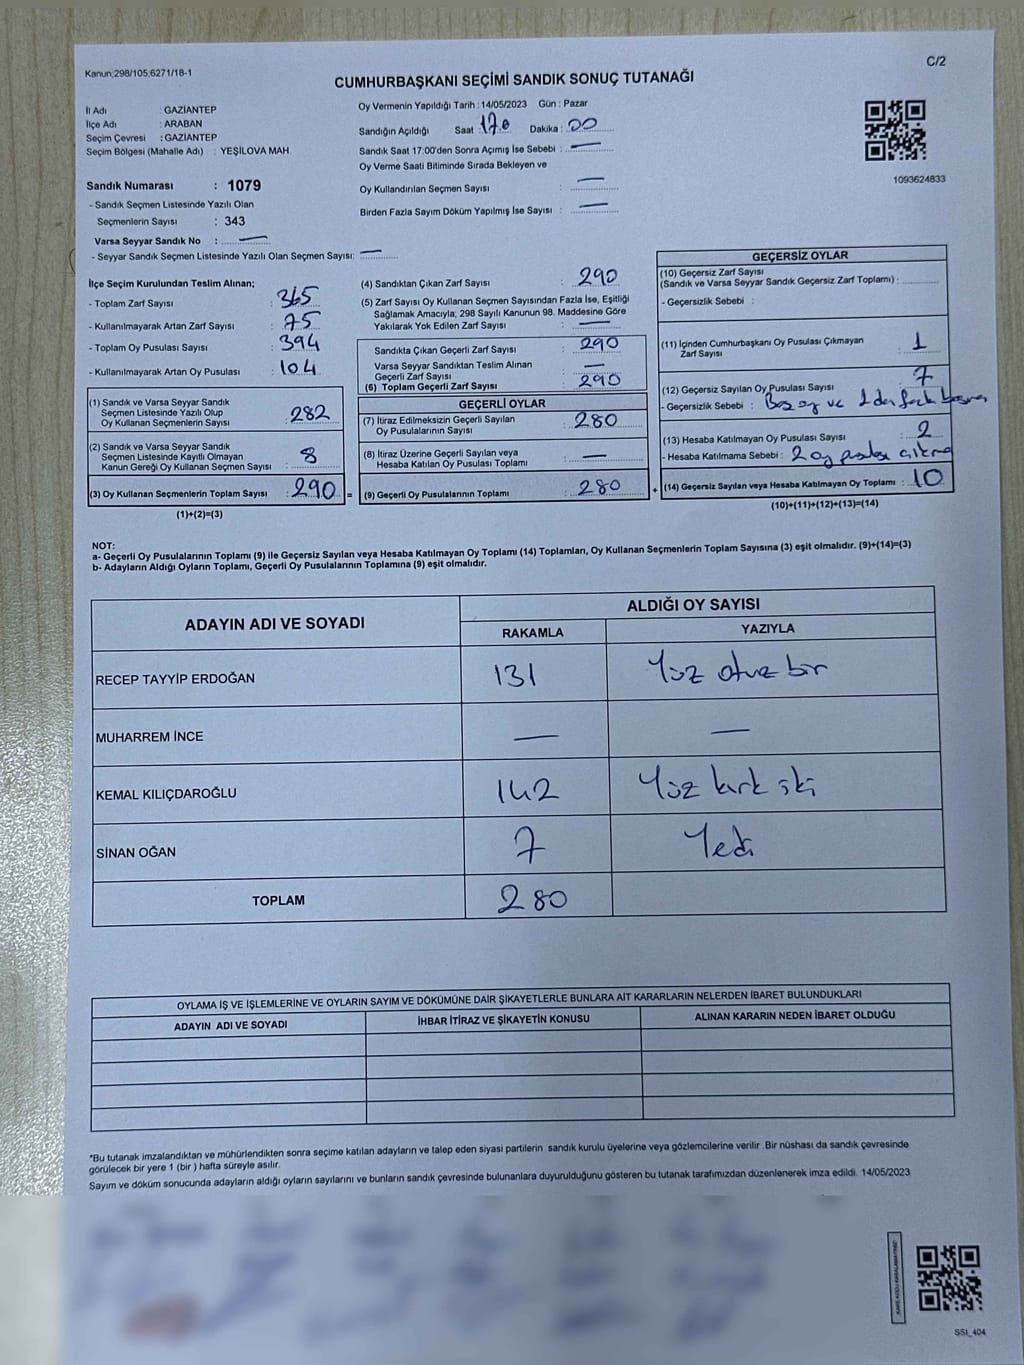 Kanun;298/105;6271/18-1
C/2
CUMHURBAŞKANI SEÇİMİ SANDIK SONUÇ TUTANAĞI
İl Adı : GAZİANTEP
İlçe Adı : ARABAN
Seçim Çevresi : GAZİANTEP
Seçim Bölgesi (Mahalle Adı) : YEŞİLOVA MAH.
Oy Vermenin Yapıldığı Tarih :14/05/2023 Gün : Pazar
Sandığın Açıldığı Saat : 17.0 Dakika : 00
Sandık Saat 17:00'den Sonra Açımış İse Sebebi : —
Oy Verme Saati Bitiminde Sırada Bekleyen ve
Oy Kullandırılan Seçmen Sayısı : —
Birden Fazla Sayım Döküm Yapılmış İse Sayısı : —
1093624833
Sandık Numarası : 1079
- Sandık Seçmen Listesinde Yazılı Olan
Seçmenlerin Sayısı : 343
Varsa Seyyar Sandık No : —
- Seyyar Sandık Seçmen Listesinde Yazılı Olan Seçmen Sayısı: —
İlçe Seçim Kurulundan Teslim Alınan;
- Toplam Zarf Sayısı : 365
- Kullanılmayarak Artan Zarf Sayısı : 75
- Toplam Oy Pusulası Sayısı : 394
- Kullanılmayarak Artan Oy Pusulası : 104
(1) Sandık ve Varsa Seyyar Sandık
Seçmen Listesinde Yazılı Olup
Oy Kullanan Seçmenlerin Sayısı : 282
(2) Sandık ve Varsa Seyyar Sandık
Seçmen Listesinde Kayıtlı Olmayan
Kanun Gereği Oy Kullanan Seçmen Sayısı : 8
(3) Oy Kullanan Seçmenlerin Toplam Sayısı : 290 =
(1)+(2)=(3)
(4) Sandıktan Çıkan Zarf Sayısı : 290
(5) Zarf Sayısı Oy Kullanan Seçmen Sayısından Fazla İse, Eşitliği
Sağlamak Amacıyla; 298 Sayılı Kanunun 98. Maddesine Göre
Yakılarak Yok Edilen Zarf Sayısı : —
Sandıkta Çıkan Geçerli Zarf Sayısı : 290
Varsa Seyyar Sandıktan Teslim Alınan
Geçerli Zarf Sayısı : —
(6) Toplam Geçerli Zarf Sayısı : 290
GEÇERLİ OYLAR
(7) İtiraz Edilmeksizin Geçerli Sayılan
Oy Pusulalarının Sayısı : 280
(8) İtiraz Üzerine Geçerli Sayılan veya
Hesaba Katılan Oy Pusulası Toplamı : —
(9) Geçerli Oy Pusulalarının Toplamı : 280 +
GEÇERSİZ OYLAR
(10) Geçersiz Zarf Sayısı
(Sandık ve Varsa Seyyar Sandık Geçersiz Zarf Toplamı) :
- Geçersizlik Sebebi :
(11) İçinden Cumhurbaşkanı Oy Pusulası Çıkmayan
Zarf Sayısı : 1
(12) Geçersiz Sayılan Oy Pusulası Sayısı : 7
- Geçersizlik Sebebi : Boş oy ve 1 den fazla basma
(13) Hesaba Katılmayan Oy Pusulası Sayısı : 2
- Hesaba Katılmama Sebebi : 2 oy pusulası çıkma
(14) Geçersiz Sayılan veya Hesaba Katılmayan Oy Toplamı : 10
(10)+(11)+(12)+(13)=(14)
NOT:
a- Geçerli Oy Pusulalarının Toplamı (9) ile Geçersiz Sayılan veya Hesaba Katılmayan Oy Toplamı (14) Toplamları, Oy Kullanan Seçmenlerin Toplam Sayısına (3) eşit olmalıdır. (9)+(14)=(3)
b- Adayların Aldığı Oyların Toplamı, Geçerli Oy Pusulalarının Toplamına (9) eşit olmalıdır.
ADAYIN ADI VE SOYADI
ALDIĞI OY SAYISI
RAKAMLA YAZIYLA
RECEP TAYYİP ERDOĞAN 131 Yüz otuz bir
MUHARREM İNCE — —
KEMAL KILIÇDAROĞLU 142 Yüz kırk iki
SİNAN OĞAN 7 Yedi
TOPLAM 280
OYLAMA İŞ VE İŞLEMLERİNE VE OYLARIN SAYIM VE DÖKÜMÜNE DAİR ŞİKAYETLERLE BUNLARA AİT KARARLARIN NELERDEN İBARET BULUNDUKLARI
ADAYIN ADI VE SOYADI İHBAR İTİRAZ VE ŞİKAYETİN KONUSU ALINAN KARARIN NEDEN İBARET OLDUĞU
*Bu tutanak imzalandıktan ve mühürlendikten sonra seçime katılan adayların ve talep eden siyasi partilerin sandık kurulu üyelerine veya gözlemcilerine verilir .Bir nüshası da sandık çevresinde
görülecek bir yere 1 (bir ) hafta süreyle asılır.
Sayım ve döküm sonucunda adayların aldığı oyların sayılarını ve bunların sandık çevresinde bulunanlara duyurulduğunu gösteren bu tutanak tarafımızdan düzenlenerek imza edildi. 14/05/2023
SSI_404